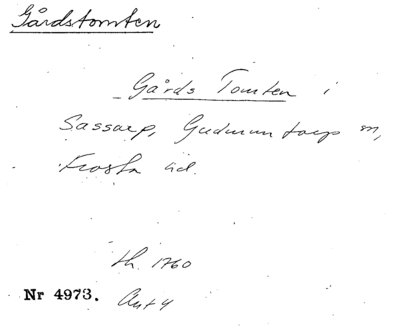 Gårdstomten
Gårds Tomten i
Sassarp, Gudmuntorp m,
Frosta äd.
th. 1760
Nr 4973. Ant 4